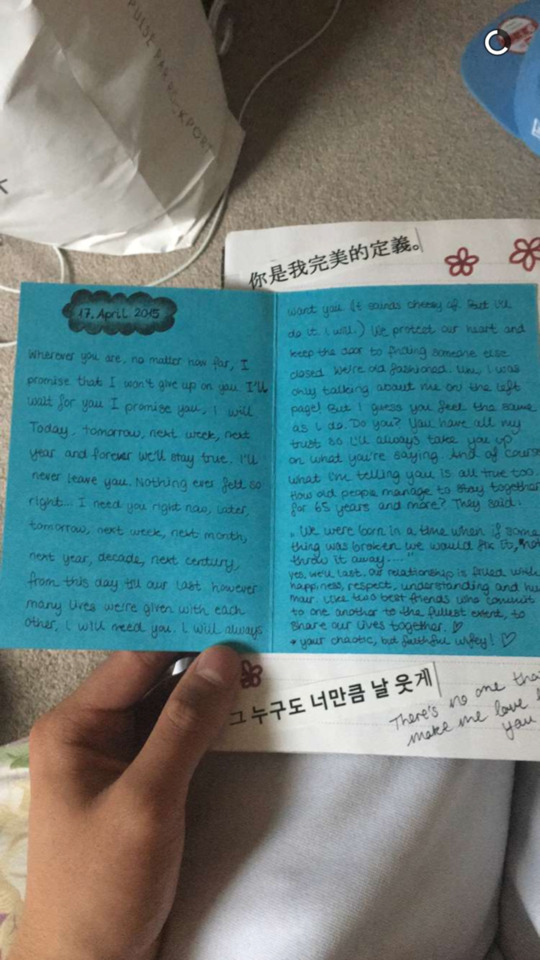 PULSE PAPER
你是我完美的定義。
17. April 2015
Wherever you are, no matter how far, I
promise that I won't give up on you I'll
wait for you I promise you, I will
Today, tomorrow, next week, next
year and forever we'll stay true. I'll
never leave you. Nothing ever felt so
right... I need you right now, later,
tomorrow, next week, next month,
next year, decade, next century,
from this day till our last however
many lives we're given with each
other, I will need you. I will always
want you. It sounds cheesy af. But I'll
do it. I will:) We protect our heart and
keep the door to finding someone else
closed. We're old fashioned. I was
only talking about me on the left
page! But I guess you feel the same
as I do. Do you? You have all my
trust so I'll always take you up
on what you're saying. And of course
what I'm telling you is all true too.
How old people manage to stay together
for 65 years and more? They said:
„We were born in a time when if some
thing was broken we would fix it, not
throw it away....."
yes, we'll last. Our relationship is filled with
happiness, respect, understanding and hu
mor. Like two best friends who commit
to one another to the fullest extent, to
share our lives together. ♡
your chaotic, but faithful wifey! ♡
그 누구도 너만큼 날 웃게
There's no one that
make me love
you